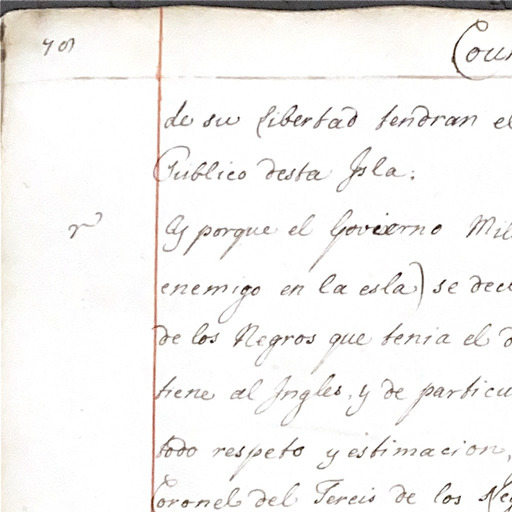 Coun
de su libertad tendran el
Publico desta Isla.
Y porque el Govierno Mil
enemigo en la esla) se decl
de los Negros que tenia el d
tiene al Ingles, y de particu
todo respeto y estimacion,
Coronel del Tercis de los Neg